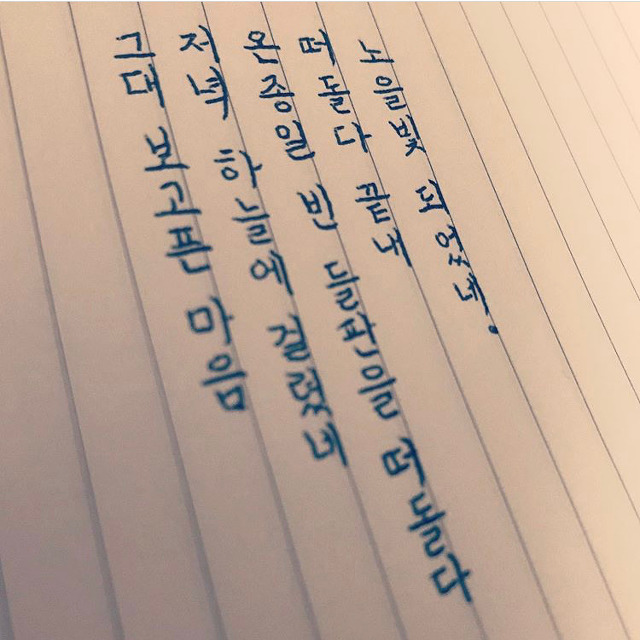 그대 보고픈 마음
저녁 하늘에 걸렸네
온종일 빈 들판을 떠돌다
떠돌다 끝내
노을빛 되었네.